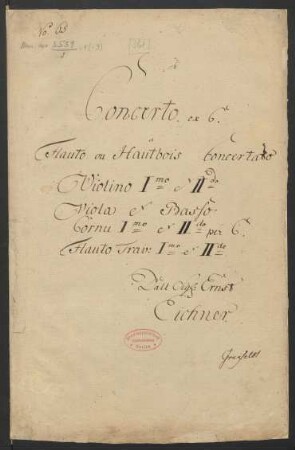 Concerto. ex C.
Flauto ou Hautbois Concertato
Violino I.mo e II.do
Viola e Basso
Cornu I.mo e II.do per C.
Flauto Trav: I.mo e II.do
Dall Sig.r Ernst
Eichner.